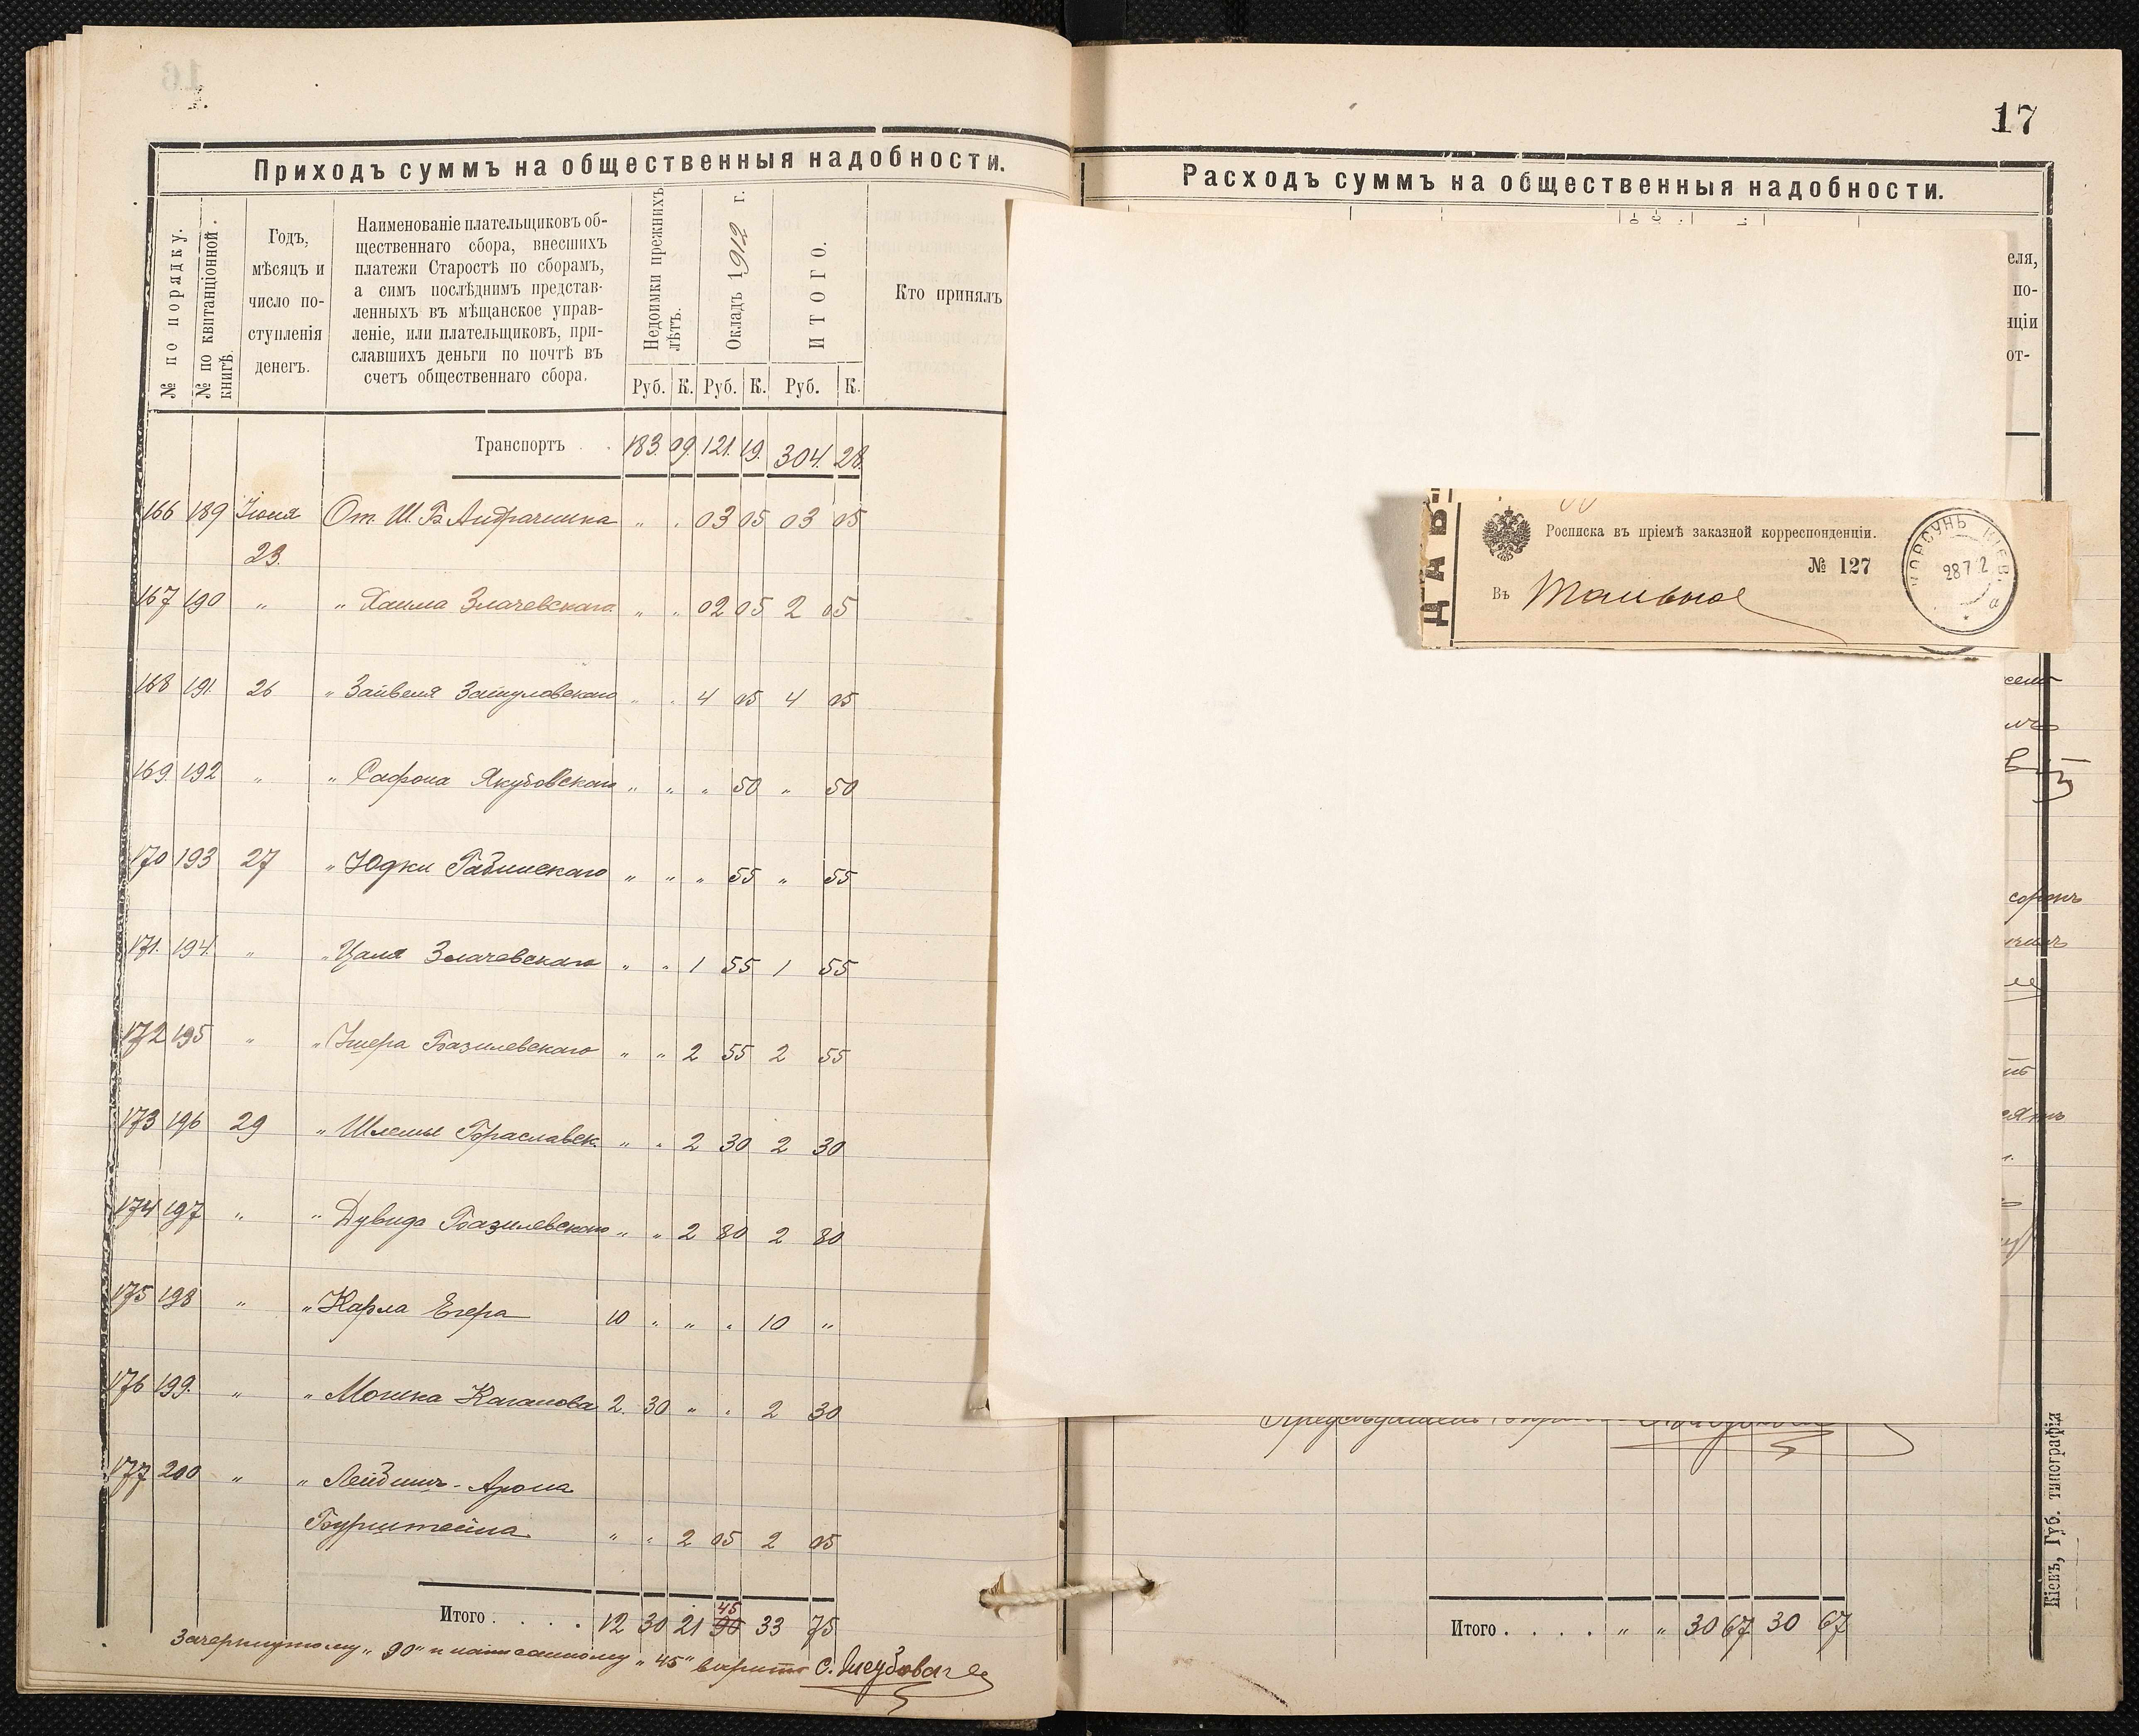 17
Приходъ суммъ на общественныя надобности.
№ по порядку.
№ по квитанціонной книгѣ.
Годъ,
мѣсяцъ и
число по-
ступленія
денегъ.
Наименованіе плательщиковъ об-
щественнаго сбора, внесшихъ
платежи Старостѣ по сборамъ,
а симъ послѣднимъ представ-
ленныхъ въ мѣщанское управ-
леніе, или плательщиковъ, при-
славшихъ деньги по почтѣ въ
счетъ общественнаго сбора.
Недоимки прежнихъ лѣтъ.
Окладъ 1912 г.
ИТОГО.
Кто принялъ
Руб. К. Руб. К. Руб. К.
Транспортъ . . 183. 09. 121. 19. 304. 28.
166 189 Іюля От Ш. Б. " . 03 05 03 05
23.
167 190 " " Хаима Злачевскаго " " 02 05 2 05
168 191. 26 " Зайвеля " " 4 05 4 05
169. 192 " " Сафона Якубовскаго " " " 50 " 50
170 193 27 " Юдки " " " 55 " 55
171. 194. " " Цаля Злачевскаго " " 1 55 1 55
172 195 " " Ушера Базилевскаго " " 2 55 2 55
173 196 29 " Шлемы Бораславск. " " 2 30 2 30
174 197 " " Дувида Базилевскаго " " 2 80 2 80
175 198 " " Карла Егера 10 " " " 10 "
176 199. " " Мошка Каганова 2. 30 " " 2 30
177 200 " " Лейбишъ-Арона
Бурштейна " " 2 05 2 05
45
Итого . . . . 12 30 21 90 33 75
Зачеркнутому „90“ и написанному „45“ верить С. Якубовск
Расходъ суммъ на общественныя надобности.
еля,
по-
нціи
от-
ДАВ
Росписка въ пріемѣ заказной корреспонденціи.
№ 127
Въ Тальное
КОРСУНЬ КІЕВ. а
28 7 12
Итого . . . . " " 30 67 30 67
Кіевъ, Губ. типографія